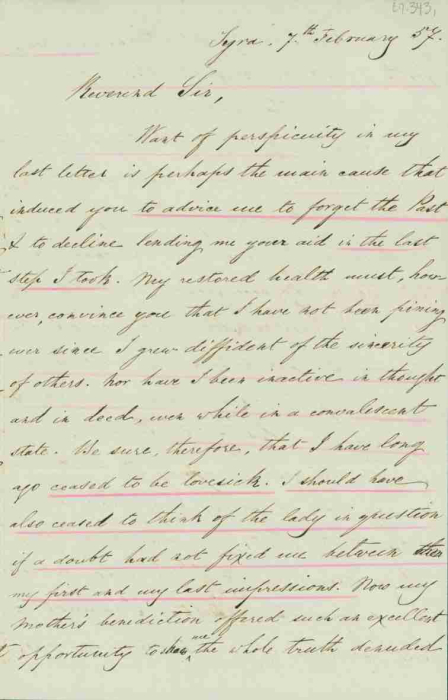 Syra, 7th February 57.
Reverend Sir,
Want of perspicuity in my
last letter is perhaps the main cause that
induced you to advice me to forget the Past
& to decline lending me your aid in the last
step I took. My restored health must, how-
ever, convince you that I have not been pining
ever since I grew diffident of the sincerity
of others. Nor have I been inactive in thought
and in deed, even while in a convalescent
state. Be sure, therefore, that I have long
ago ceased to be lovesick. I should have
also ceased to think of the lady in question
if a doubt had not fixed me between
my first and my last impressions. Now my
mother's benediction offered such an excellent
opportunity to me the whole truth denuded